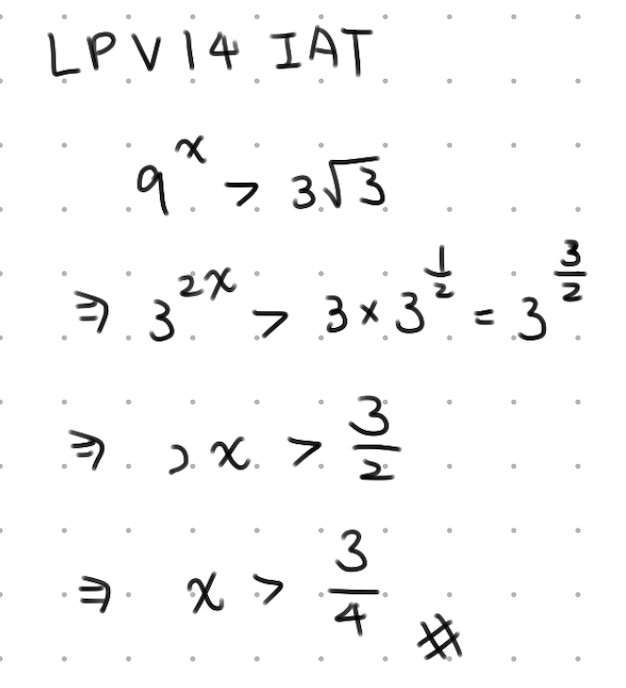 LPV14 IAT
9^x > 3√3
⇒ 3^{2x} > 3 × 3^{1/2} = 3^{3/2}
⇒ 2x > 3/2
⇒ x > 3/4 #